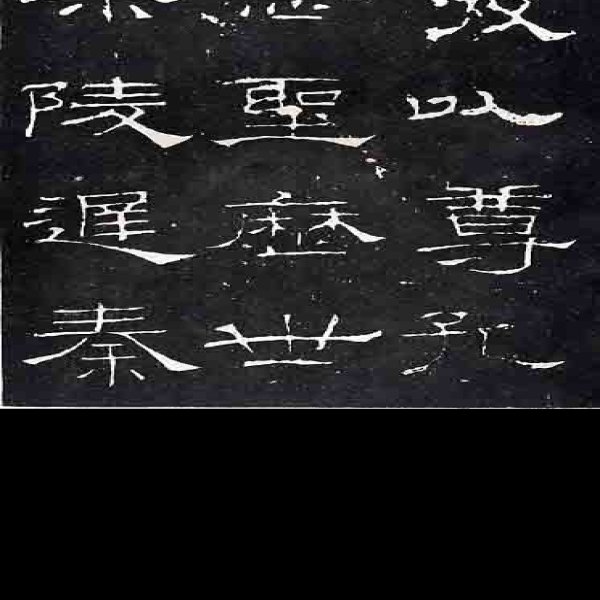 以尊孔
聖歷世
陵遲秦